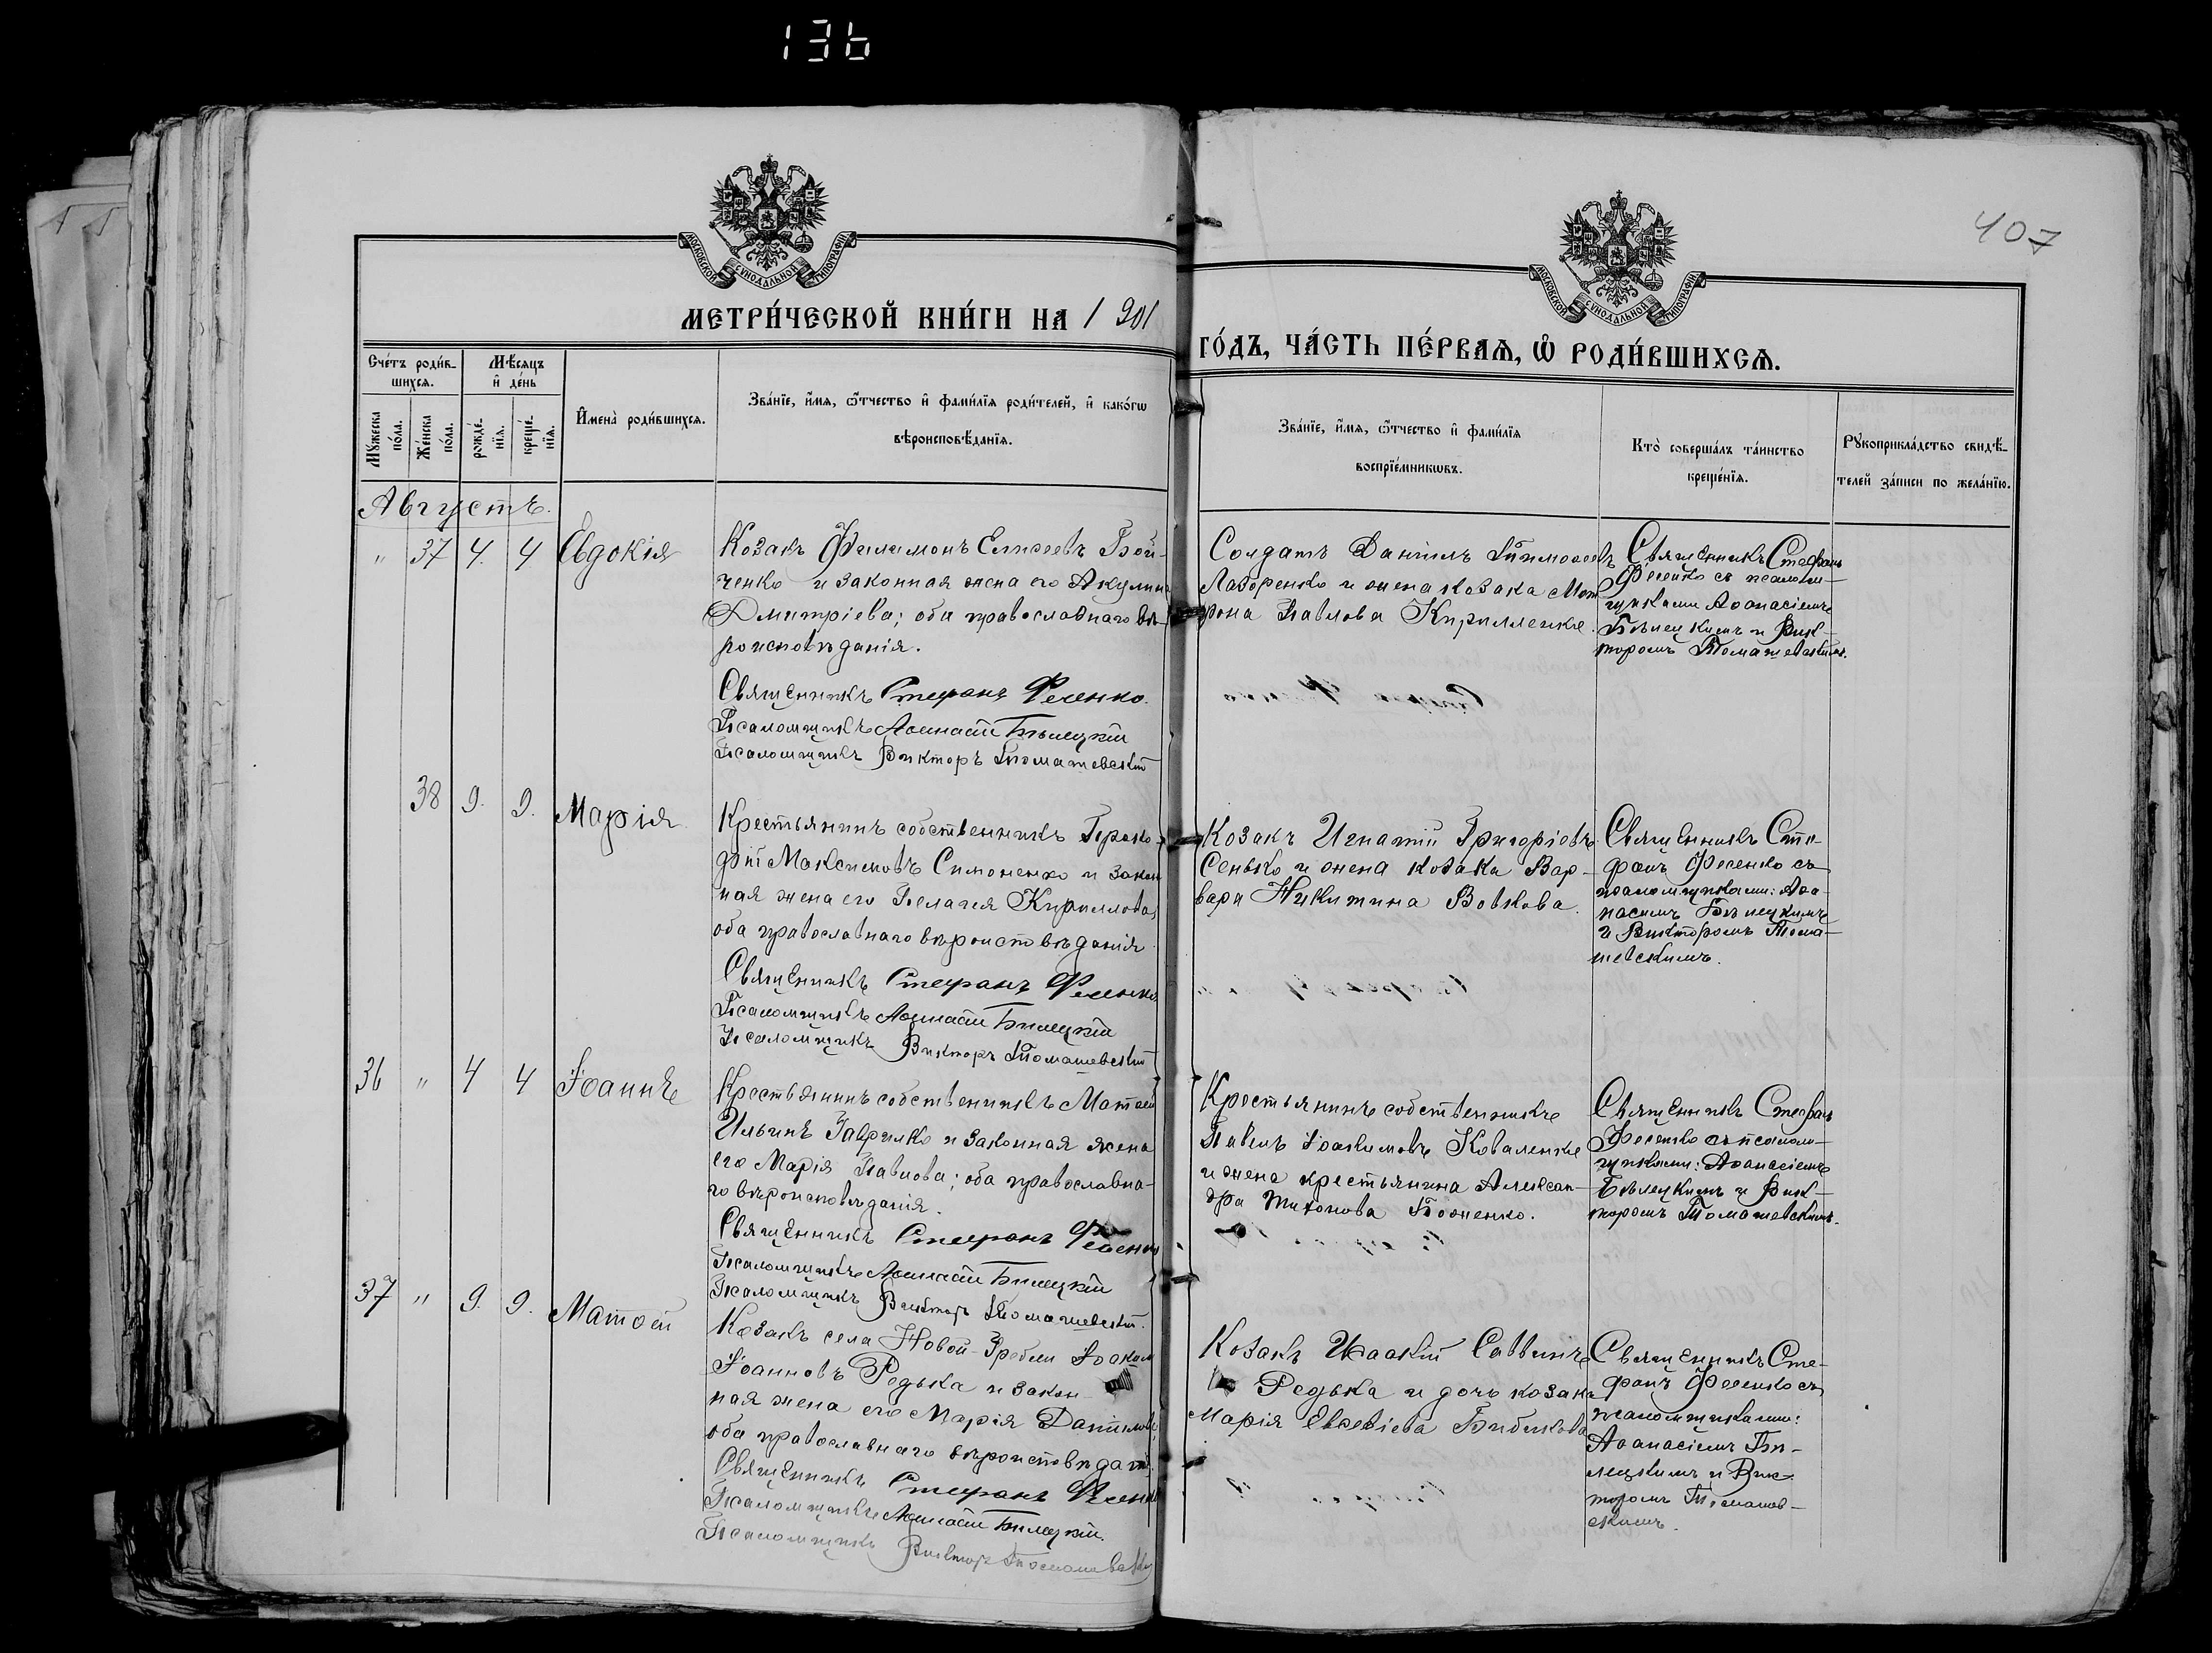 136
407
МОСКОВСКОЙ СѴНОДАЛЬНОЙ ТИПОГРАФІИ.
МОСКОВСКОЙ СѴНОДАЛЬНОЙ ТИПОГРАФІИ.
МЕТРИ́ЧЕСКОЙ КНИ́ГИ НА 1901
ГО́ДЪ, ЧА́СТЬ ПЕ́РВАѦ, Ѡ РОДИ́ВШИХСѦ.
Сче́тъ роди́в-
шихсѧ.
Мѣ́сѧцъ
и҆ де́нь
Мꙋ́жеска
по́ла.
Же́нска
по́ла.
рожде́-
нїѧ.
креще́-
нїѧ.
И҆мена̀ роди́вшихсѧ.
Зва́нїе, и҆́мѧ, ѻ҆́тчество и҆ фами́лїѧ роди́телей, и҆ како́гѡ
вѣроисповѣ́данїѧ.
Зва́нїе, и҆́мѧ, ѻ҆́тчество и҆ фами́лїѧ
воспрїе́мникѡвъ.
Кто̀ соверша́лъ та́инство
креще́нїѧ.
Рꙋкоприкла́дство свидѣ́-
телей за́писи по жела́нїю.
Августъ.
" 37 4. 4 Евдокія
Козакъ Филимонъ Елисеевъ Бой-
ченко и законная жена его Акулина
Дмитріева; оба православнаго вѣ-
роисповѣданія.
Священникъ Стефанъ Фесенко.
Псаломщикъ Аѳанасій Бѣлецкій
Псаломщикъ Викторъ Томашевскій
Солдатъ Даніилъ Тимоѳеевъ
Лазоренко и жена козака Мат
рона Павлова Кириленкъ.
Священникъ Стефанъ
Фесенко съ псалом-
щиками Аѳанасіемъ
Бѣлецкимъ и Вик-
торомъ Томашевскимъ.
38 9. 9. Марія
Крестьянинъ собственникъ Проко-
фій Максимовъ Симоненко и закон
ная жена его Пелагея Кириллова,
оба православнаго вѣроисповѣданія
Священникъ Стефанъ Фесенко
Псаломщикъ Аѳанасій Бѣлецкій
Псаломщикъ Викторъ Томашевскій
Козакъ Игнатій Григоріевъ
Сенько и жена козака Вар-
вара Никитина Вовкова.
Священникъ Сте-
фанъ Фесенко съ
псаломщиками: Аѳа-
насіемъ Бѣлецкимъ
и Викторомъ Тома-
шевскимъ.
36 " 4 4 Іоаннъ
Крестьянинъ собственникъ Матѳей
Ильинъ Гаврилко и законная жена
его Марія Павлова; оба православна-
го вѣроисповѣданія.
Священникъ Стефанъ Фесенко
Псаломщикъ Аѳанасій Бѣлецкій
Псаломщикъ Викторъ Томашевскій.
Крестьянинъ собственникъ
Павелъ Іоакимовъ Коваленко
и жена крестьянина Алексан-
дра Тихонова Боженко.
Священникъ Стефанъ
Фесенко съ псалом-
щиками: Аѳанасіемъ
Бѣлецкимъ и Вик-
торомъ Томашевскимъ.
37 " 9. 9. Матѳей
Козакъ села Новой-Гребли Іоаким
Іоанновъ Редька и закон-
ная жена его Марія Данилова,
оба православнаго вѣроисповѣданія.
Священникъ Стефанъ Фесенко
Псаломщикъ Аѳанасій Бѣлецкій.
Псаломщикъ Викторъ Томашевскій
Козакъ Исаакій Саввинъ
Редька и дочь козака
Марія Евсевіева Бибикова
Священникъ Сте-
фанъ Фесенко съ
псаломщиками:
Аѳанасіемъ Бѣ-
лецкимъ и Вик-
торомъ Томашев-
скимъ.